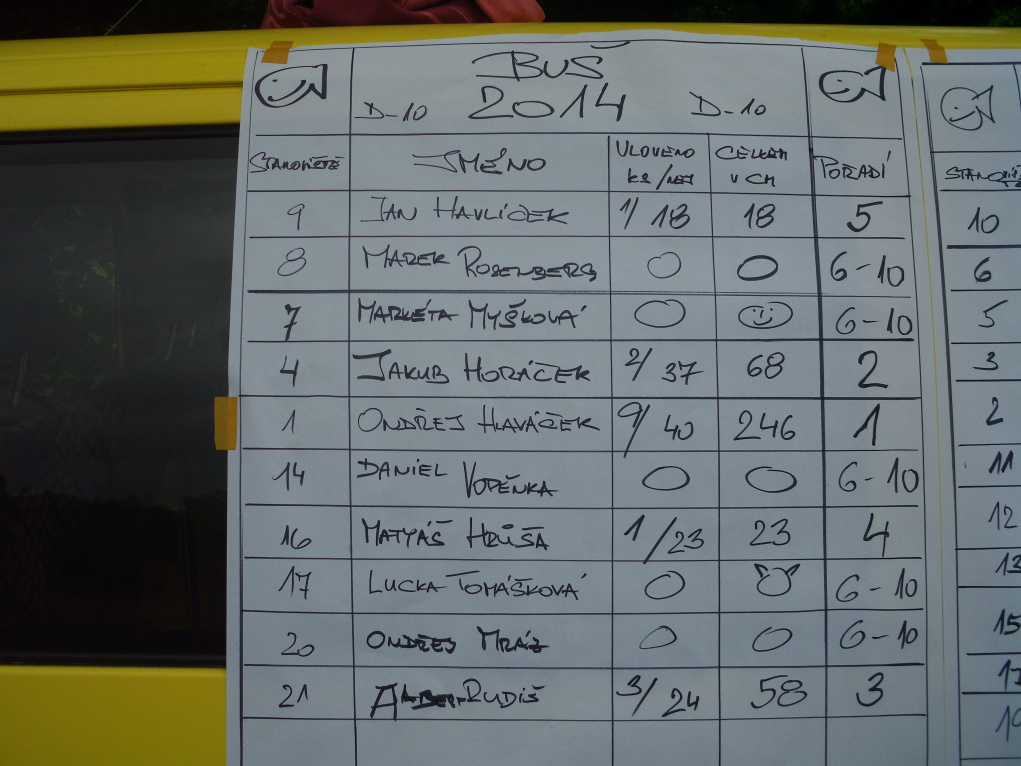 BUŠ
D-10 2014 D-10
STANOVIŠTĚ JMÉNO ULOVENO KS/NEJ CELKEM V CM POŘADÍ STANOVIŠTĚ
9 JAN HAVLÍČEK 1/18 18 5 10
8 MAREK ROSENBERG 0 0 6-10 6
7 MARKÉTA MYŠKOVÁ 0 0 6-10 5
4 JAKUB HORÁČEK 2/37 68 2 3
1 ONDŘEJ HLAVÁČEK 9/40 246 1 2
14 DANIEL VODĚNKA 0 0 6-10 11
16 MATYÁŠ HRŮŠA 1/23 23 4 12
17 LUCKA TOMÁŠKOVÁ 0 0 6-10 13
20 ONDŘEJ MRÁZ 0 0 6-10 15
21 RUDIŠ 3/24 58 3